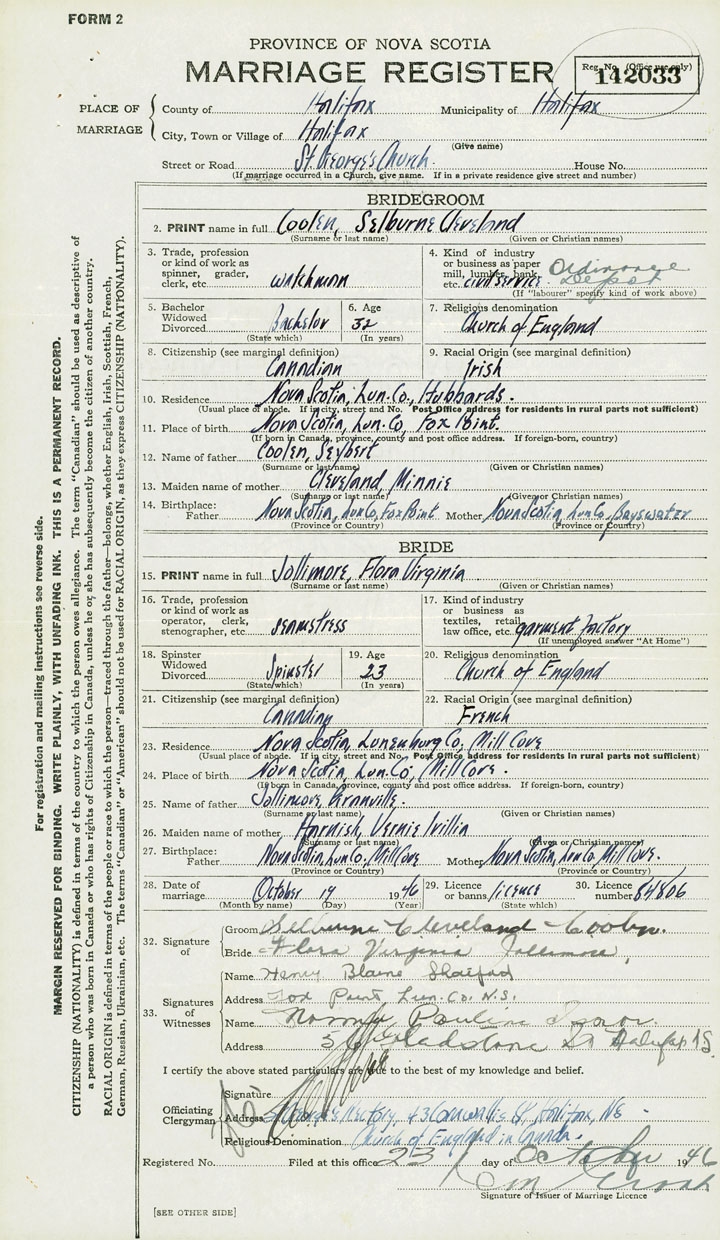 FORM 2
PROVINCE OF NOVA SCOTIA
MARRIAGE REGISTER
Reg. No. (Office use only)
142033
PLACE OF MARRIAGE
County of Halifax Municipality of Halifax
City, Town or Village of Halifax
(Give name)
Street or Road St George's Church House No.
(If marriage occurred in a Church, give name. If in a private residence give street and number)
BRIDEGROOM
2. PRINT name in full Coolen, Selburne Cleveland
(Surname or last name) (Given or Christian names)
3. Trade, profession or kind of work as spinner, grader, clerk, etc. watchman
4. Kind of industry or business as paper mill, lumber, bank, etc. civil service. Ordinance Depot
(If "labourer" specify kind of work above)
5. Bachelor Widowed Divorced Bachelor
(State which)
6. Age 32
(In years)
7. Religious denomination
Church of England
8. Citizenship (see marginal definition)
Canadian
9. Racial Origin (see marginal definition)
Irish
10. Residence Nova Scotia, Lun. Co, Hubbards.
(Usual place of abode. If in city, street and No. Post Office address for residents in rural parts not sufficient)
11. Place of birth Nova Scotia, Lun. Co, Fox Point.
(If born in Canada, province, county and post office address. If foreign-born, country)
12. Name of father Coolen, Seybert
(Surname or last name) (Given or Christian names)
13. Maiden name of mother Cleveland, Minnie
(Surname or last name) (Given or Christian names)
14. Birthplace: Father Nova Scotia, Lun Co, Fox Point Mother Nova Scotia, Lun Co, Bayswater
(Province or Country) (Province or Country)
BRIDE
15. PRINT name in full Jollimore, Flora Virginia
(Surname or last name) (Given or Christian names)
16. Trade, profession or kind of work as operator, clerk, stenographer, etc. seamstress
17. Kind of industry or business as textiles, retail, law office, etc. garment factory
(If unemployed answer "At Home")
18. Spinster Widowed Divorced Spinster
(State which)
19. Age 23
(In years)
20. Religious denomination
Church of England
21. Citizenship (see marginal definition)
Canadian
22. Racial Origin (see marginal definition)
French
23. Residence Nova Scotia, Lunenburg Co, Mill Cove
(Usual place of abode. If in city, street and No. Post Office address for residents in rural parts not sufficient)
24. Place of birth Nova Scotia, Lun. Co, Mill Cove.
(If born in Canada, province, county and post office address. If foreign-born, country)
25. Name of father Jollimore, Granville.
(Surname or last name) (Given or Christian names)
26. Maiden name of mother Harnish, Vernie Ivillia
(Surname or last name) (Given or Christian names)
27. Birthplace: Father Nova Scotia, Lun. Co, Mill Cove Mother Nova Scotia, Lun. Co, Mill Cove.
(Province or Country) (Province or Country)
28. Date of marriage October 19 1946
(Month by name) (Day) (Year)
29. Licence or banns licence
(State which)
30. Licence number 84806
32. Signature of
Groom Selburne Cleveland Coolen.
Bride Flora Virginia Jollimore,
33. Signatures of Witnesses
Name Henry Blaine
Address Fox Point Lun. Co. N.S.
Name Norma Pauline
Address 56 Gladstone St Halifax N.S.
I certify the above stated particulars are true to the best of my knowledge and belief.
Officiating Clergyman
Signature
Address St George's Rectory, 43 Cornwallis St, Halifax, NS
Religious Denomination Church of England in Canada.
Registered No. Filed at this office 23 day of October 1946
Signature of Issuer of Marriage Licence
[SEE OTHER SIDE]
For registration and mailing instructions see reverse side.
MARGIN RESERVED FOR BINDING. WRITE PLAINLY, WITH UNFADING INK. THIS IS A PERMANENT RECORD.
CITIZENSHIP (NATIONALITY) is defined in terms of the country to which the person owes allegiance. The term "Canadian" should be used as descriptive of
a person who was born in Canada or who has rights of Citizenship in Canada, unless he or she has subsequently become the citizen of another country.
RACIAL ORIGIN is defined in terms of the people or race to which the person—traced through the father—belongs, whether English, Irish, Scottish, French,
German, Russian, Ukrainian, etc. The terms "Canadian" or "American" should not be used for RACIAL ORIGIN, as they express CITIZENSHIP (NATIONALITY).